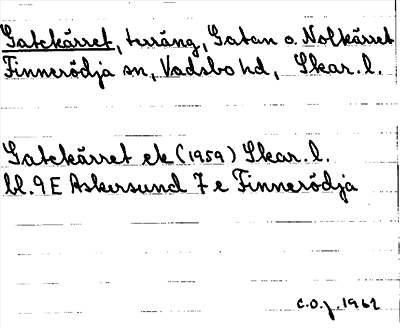 Gatckärret, terräng, Gatan o. Nolkärret
Finnerödja sn, Vadsbo hd, Skar. l.
Gatckärret ek (1959) Skar. l.
bl. 9 E Askersund 7 e Finnerödja
c.o.j. 1962